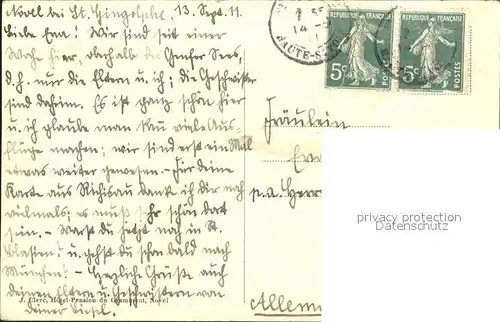 Novel bei St. Gingolphe, 13. Sept. 11.
Liebe Eva! Wir sind seit einer
Woche hier, oberhalb des Genfer Sees,
d.h. nur die Eltern u. ich; die Geschwister
sind daheim. Es ist ganz schön hier
u. ich glaube man kann viele Aus-
flüge machen; wir sind erst ein Mal
etwas weiter gewesen. – Für deine
Karte aus Richisau dank ich dir noch
vielmals; es muß sehr schön dort
sein. – Warst du jetzt noch in St.
Blasien? u. gehst du schon bald nach
München? – Herzliche Grüße auch
deinen Eltern u. Geschwistern von
deiner Liesel.
J. Clerc, Hôtel-Pension du Grammont, Novel
HAUTE-S
REPUBLIQUE FRANÇAISE
5c POSTES
REPUBLIQUE FRANÇAISE
5c POSTES
Fräulein
p.a. Herr
Allem
privacy protection
Datenschutz